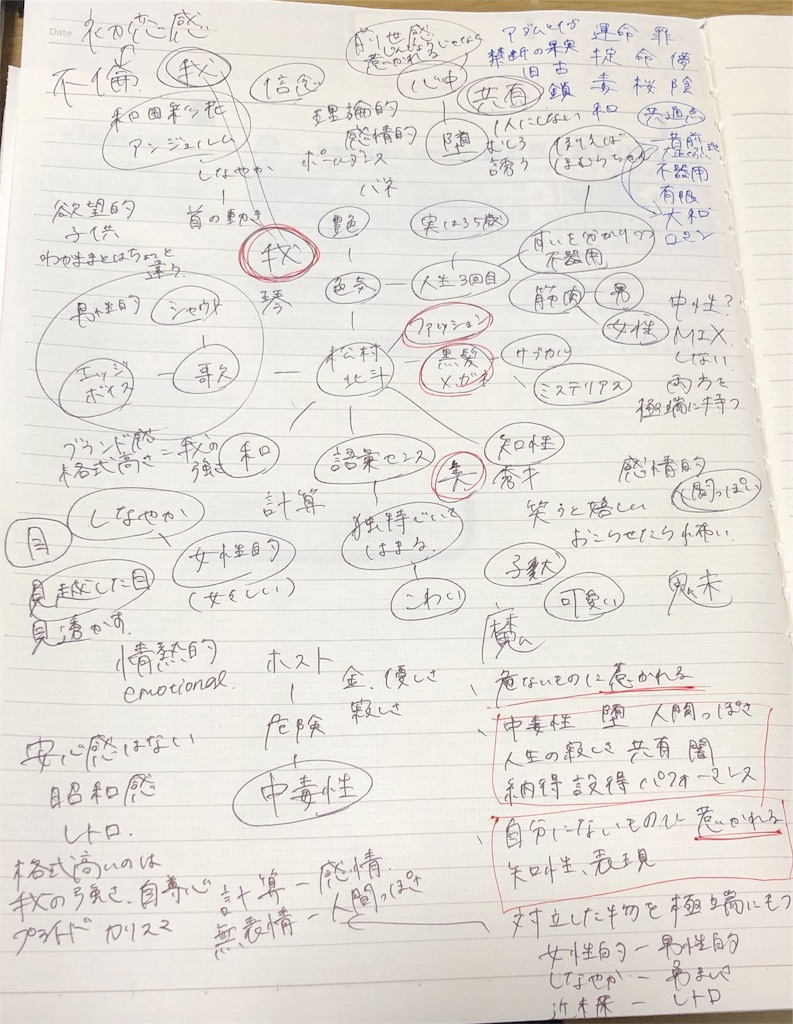 Date
不倫
我
信念
和田彩花
アンジュルム
しなやか
首の動き
理論的
感情的
ポールダンス
バネ
前世感
惹かれる
心中
堕
共有
1人にしない
むしろ
誘う
禁断の果実
旧 古
鎖 毒 桜 陰
運命 罪
掟 命 儚
和
共通点
不器用
有限
大和
ロマン
例えば
ほむらちゃん
欲望的
子供
わがままとはちょっと
違う
我
琴
艶
色気
実は35歳
人生3回目
不器用
筋肉
男
女性
中性?
MIX
しない
両方を
極端に持つ
男性的
シャウト
エッジ
ボイス
歌久
松村
北斗
ファッション
黒髪
メガネ
サブカル
ミステリアス
ブランド感
格式高さ=我の
強さ
和
語彙センス
知性
秀才
計算
独特でいて
はまる
こわい
笑うと嬉しい
おこらせたら怖い
感情的
人間っぽい
子犬
可愛い
目
しなやか
女性的
(女々しい)
見越した目
見透かす
情熱的
emotional.
ホスト
金、優しさ
寂しさ
危険
中毒性
魔
危ないものに惹かれる
中毒性 堕 人間っぽさ
人生の寂しさ 共有 闇
納得 説得 パフォーマンス
自分にないものに惹かれる
知性、表現
安心感はない
昭和感
レトロ.
格式高いのは
我の強さ、自尊心
プライド カリスマ
計算 ー 感情
無表情 ー 人間っぽさ
対立した物を極端にもつ
女性的 ー 男性的
しなやか ー 勇ましさ
近未来 ー レトロ